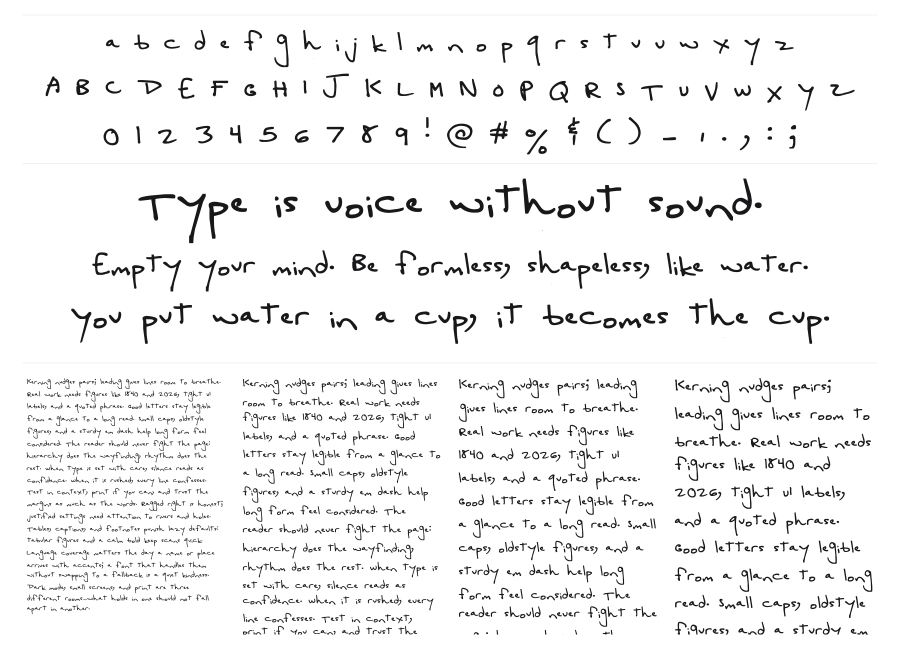 a b c d e f g h i j k l m n o p q r s t u v w x y z
A B C D E F G H I J K L M N O P Q R S T U V W X Y Z
0 1 2 3 4 5 6 7 8 9 ! @ # % & ( ) – , . , : ;
Type is voice without sound.
Empty your mind. Be formless, shapeless, like water.
You put water in a cup, it becomes the cup.
Kerning nudges pairs; leading gives lines room to breathe.
Real work needs figures like 1840 and 2026, tight UI
labels, and a quoted phrase. Good letters stay legible
from a glance to a long read. Small caps, oldstyle
figures, and a sturdy em dash help long form feel
considered. The reader should never fight the page;
hierarchy does the wayfinding, rhythm does the
rest. When type is set with care, silence reads as
confidence. When it is rushed, every line confesses.
Test in context, print if you can, and trust the
margins as much as the words. Ragged right is honest;
justified settings need attention to rivers and holes.
Tables, captions, and footnotes punish lazy defaults.
Tabular figures and a calm bold keep scans quick.
Language coverage matters the day a name or place
arrives with accents; a font that handles them
without swapping to a fallback is a quiet kindness.
Dark mode, small screens, and print are three
different rooms—what holds in one should not fall
apart in another.
Kerning nudges pairs; leading gives lines
room to breathe. Real work needs
figures like 1840 and 2026, tight UI
labels, and a quoted phrase. Good
letters stay legible from a glance to
a long read. Small caps, oldstyle
figures, and a sturdy em dash help
long form feel considered. The
reader should never fight the page;
hierarchy does the wayfinding,
rhythm does the rest. When type is
set with care, silence reads as
confidence. When it is rushed, every
line confesses. Test in context,
print if you can, and trust the
Kerning nudges pairs; leading
gives lines room to breathe.
Real work needs figures like
1840 and 2026, tight UI
labels, and a quoted phrase.
Good letters stay legible from
a glance to a long read. Small
caps, oldstyle figures, and a
sturdy em dash help long
form feel considered. The
reader should never fight the
Kerning nudges pairs;
leading gives lines room to
breathe. Real work needs
figures like 1840 and
2026, tight UI labels,
and a quoted phrase.
Good letters stay legible
from a glance to a long
read. Small caps, oldstyle
figures, and a sturdy em